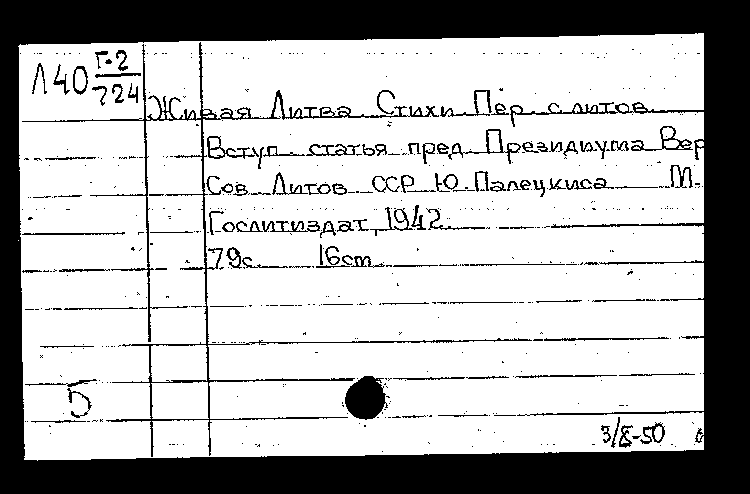 Л40 Г-2
224
Живая Литва. Стихи. Пер. с литов.
Вступ. статья пред. Президиума Вер
Сов. Литов. ССР Ю. Палецкиса М.
Гослитиздат, 1942.
79с. 16cm.
5
3/X-50